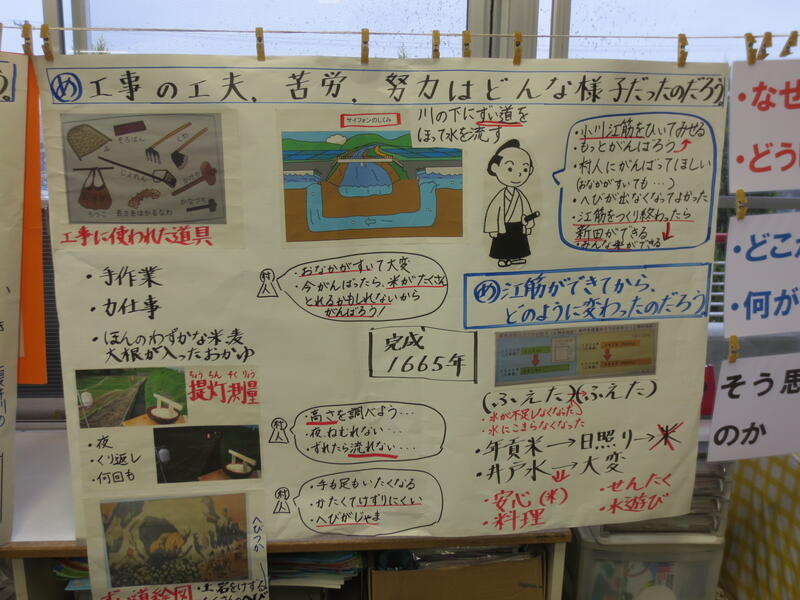 め 工事の工夫、苦労、努力はどんな様子だったのだろう
そろばん
くわ
じょれん
もっこ
長さをはかるなわ
かなづち
工事に使われた道具
サイフォンのしくみ
川の下にずい道を
ほって水を流す
・小川江筋をひいてみせる
・もっとがんばろう
・村人にがんばってほしい
(おなかがすいても…)
・へびが出なくなってよかった
・江筋をつくり終わったら
新田ができる
・みんな米ができる
・手作業
・力仕事
・ほんのわずかな米麦
大根が入ったおかゆ
村人
・おなかがすいて大変
・今がんばったら、米がたくさん
とれるかもしれないから
がんばろう!
完成
1665年
め 江筋ができてから、
どのように変わったのだろう
ちょうちんそくりょう
提灯測量
・夜
・くり返し
・何回も
村人
・高さを調べよう…
・夜、ねむれない…
・ずれたら流れない…
村人
・手も足もいたくなる
・かたくてけずりにくい
・へびがじゃま
(ふえた)(ふえた)
・水が不足しなくなった
・水にこまらなくなった
・年貢米→日照り→米
・井戸水→大変
・安心(米)
・料理
・せんたく
・水遊び
へびつか
ずい道絵図
・土岩をけずる
・なぜ
・どう
・どこ
・何が
そう思
のか